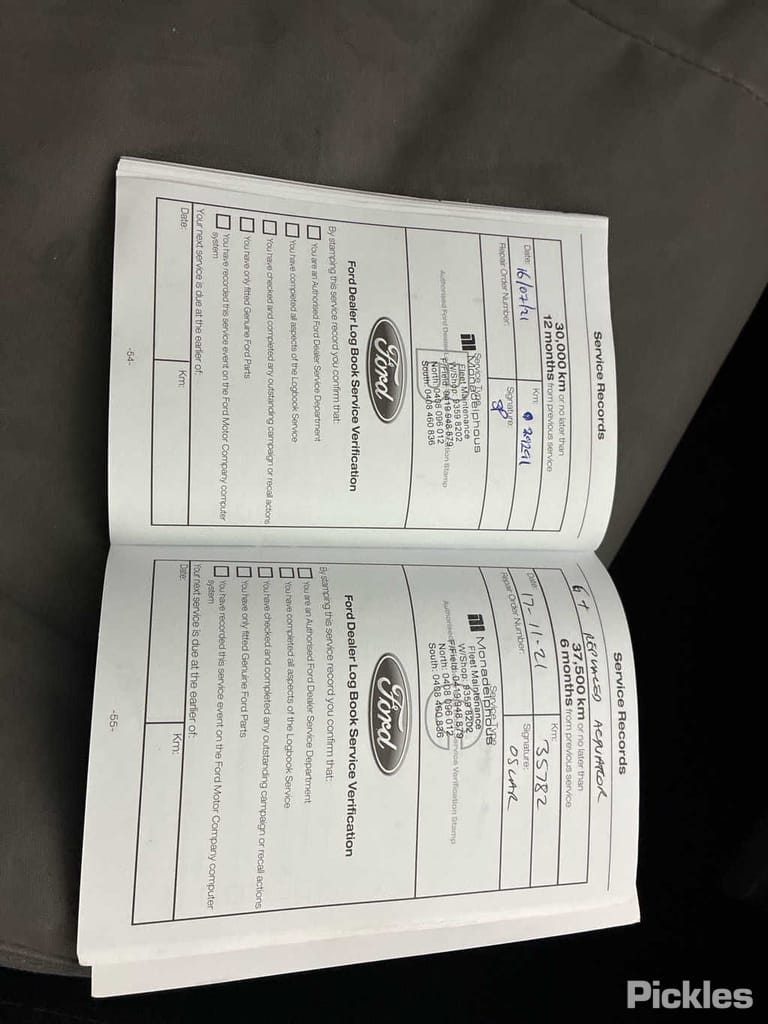 Service Records
30,000 km or no later than
12 months from previous service
Date: 16/07/21
Km: 29291
Repair Order Number:
Signature:
Service Type
Monadelphous
Fleet Maintenance
W/Shop: 9359 8202
P/Field: 0419 948 879
North: 0408 096 012
South: 0408 460 836
Authorised Ford Dealer
tion Stamp
Ford
Ford Dealer Log Book Service Verification
By stamping this service record you confirm that:
You are an Authorised Ford Dealer Service Department
You have completed all aspects of the Logbook Service
You have checked and completed any outstanding campaign or recall actions
You have only fitted Genuine Ford Parts
You have recorded this service event on the Ford Motor Company computer
system
Your next service is due at the earlier of:
Date:
Km:
-54-
Service Records
REPLACED ACTUATOR
37,500 km or no later than
6 months from previous service
Date: 17-11-21
Km: 35782
Repair Order Number:
Signature: OSCAR
Service Type
Monadelphous
Fleet Maintenance
W/Shop: 9359 8202
P/Field: 0419 948 879
North: 0408 096 012
South: 0408 460 836
Authorised
Service Verification Stamp
Ford
Ford Dealer Log Book Service Verification
By stamping this service record you confirm that:
You are an Authorised Ford Dealer Service Department
You have completed all aspects of the Logbook Service
You have checked and completed any outstanding campaign or recall actions
You have only fitted Genuine Ford Parts
You have recorded this service event on the Ford Motor Company computer
system
Your next service is due at the earlier of:
Date:
Km:
-55-
Pickles